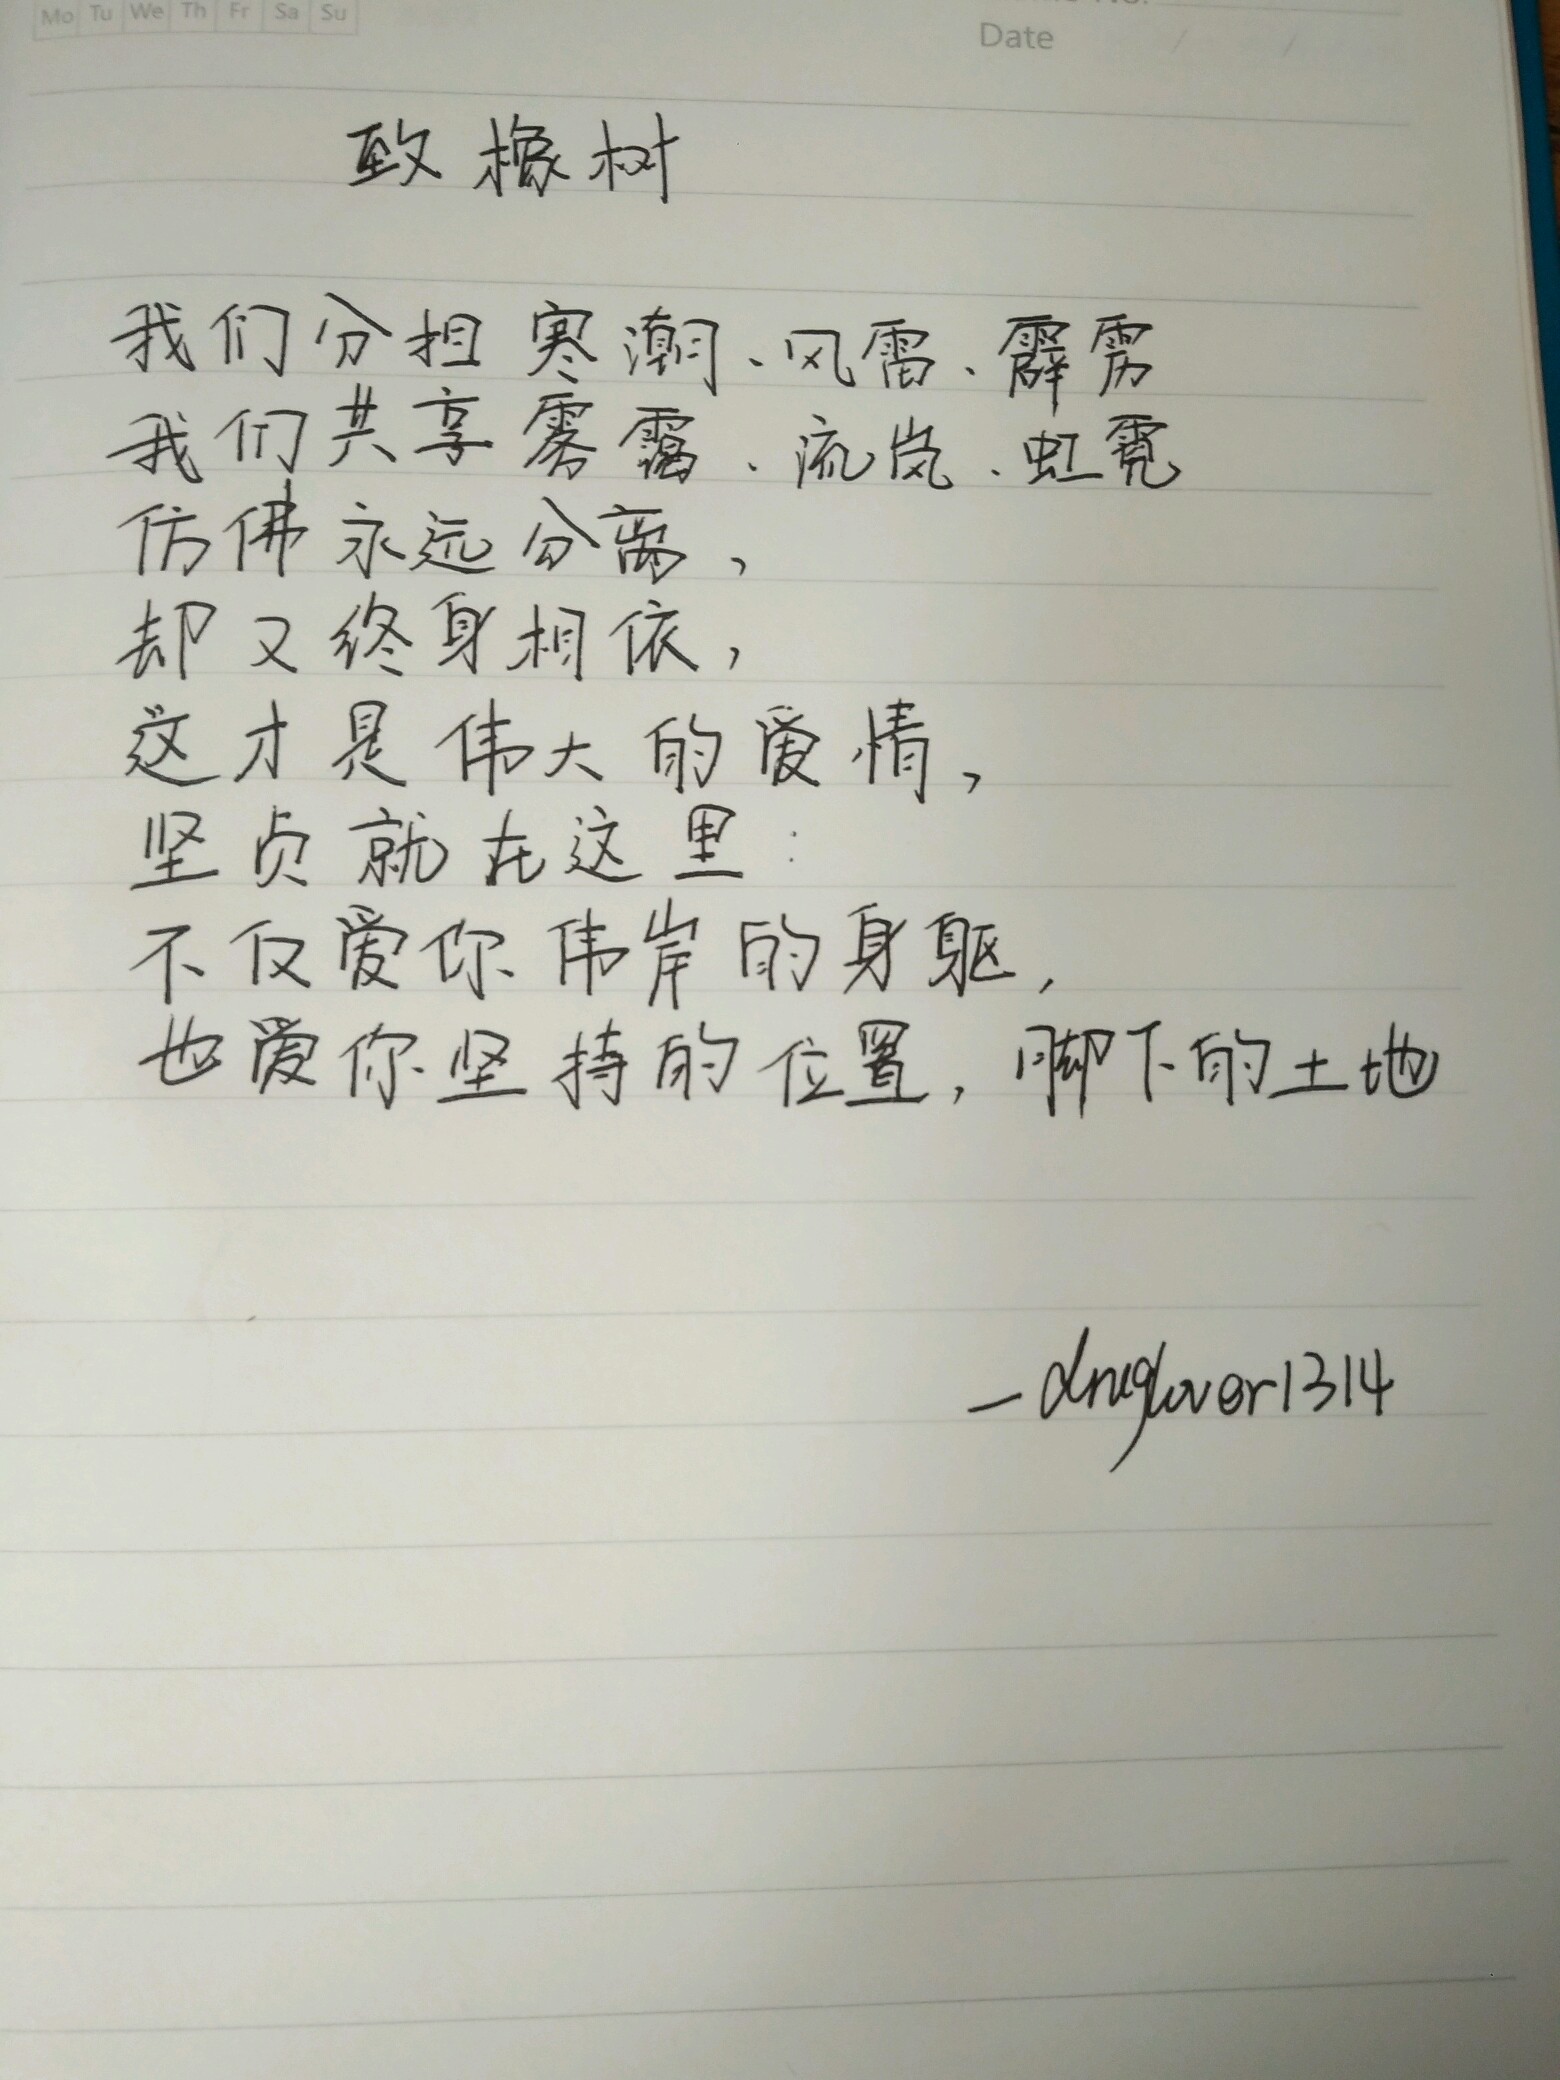 Mo Tu We Th Fr Sa Su
Date / /
致橡树
我们分担寒潮、风雷、霹雳
我们共享雾霭、流岚、虹霓
仿佛永远分离，
却又终身相依，
这才是伟大的爱情，
坚贞就在这里：
不仅爱你伟岸的身躯，
也爱你坚持的位置，脚下的土地